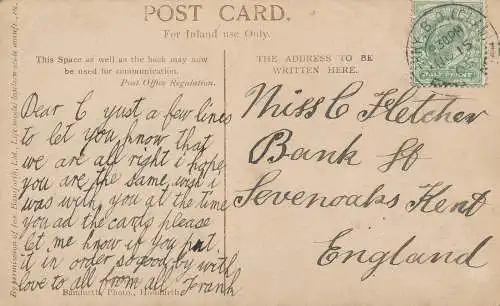 POST CARD.
For Inland use Only.
This Space as well as the back may now
be used for communication.
Post Office Regulation.
THE ADDRESS TO BE
WRITTEN HERE.
Dear C yust a few lines
to let you know that
we are all right i hope
you are the same wish i
was with you at the time
you ad the cards please
let me know if you put
it in order so good by with
love to all from all Frank
Bamforth, Photo., Holmfirth
Miss C Fletcher
Bank St
Sevenoaks Kent
England
HALFPENNY
By permission of
Bamforth, Ltd., Life model lantern slide